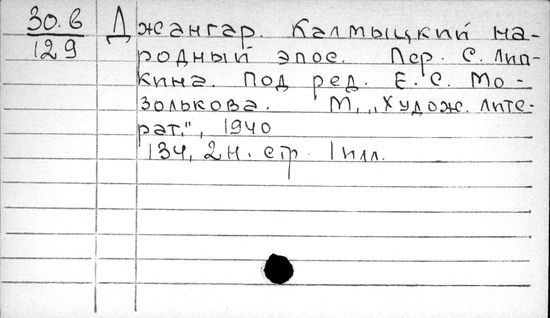 30.6
129
Джангар. Калмыцкий на-
родный эпос. Пер. С. Лип-
кина. Под ред. Е. С. Мо-
золькова. М, „Худож. лите-
рат.", 1940
134, 2 н. стр. 1 илл.